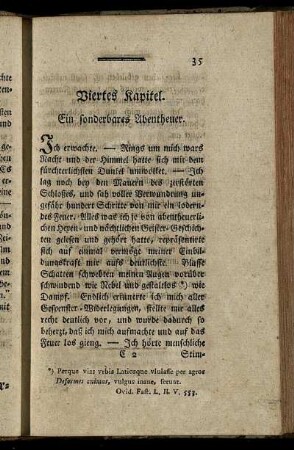 35
Viertes Kapitel.
Ein sonderbares Abentheuer.
Ich erwachte. — Rings um mich wars
Nacht und der Himmel hatte sich mit dem
fürchterlichsten Dunkel umwölket. — Ich
lag noch bey den Mauern des zerstörten
Schlosses, und sah voller Verwundrung un-
gefähr hundert Schritte von mir ein lodern-
des Feuer. Alles was ich je von abentheuerli-
chen Hexen- und nächtlichen Geister-Geschich-
ten gelesen und gehört hatte, repräsentirte
sich auf einmal vermöge meiner Einbil-
dungskraft mir aufs deutlichste.
Schatten schwebten meinen Augen vorüber
schwindend wie Nebel und gestaltlos *) wie
Dampf. Endlich erinnerte ich mich aller
Gespenster-Widerlegungen, stellte mir alles
recht deutlich vor, und wurde dadurch so
beherzt, daß ich mich aufmachte und auf das
Feuer los gieng. — Ich hörte menschliche
C 2 Stim-
*) Perque vias vrbis Latiosque vlulasse per agros
Deformes animas, vulgus inane, ferunt.
Ovid. Fast. L. II. V. 553.